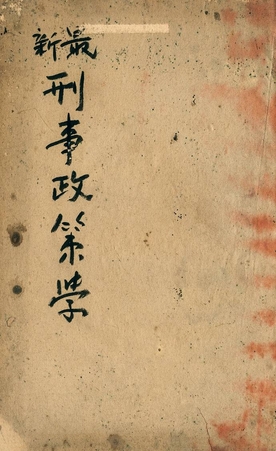 最新
刑事政策学